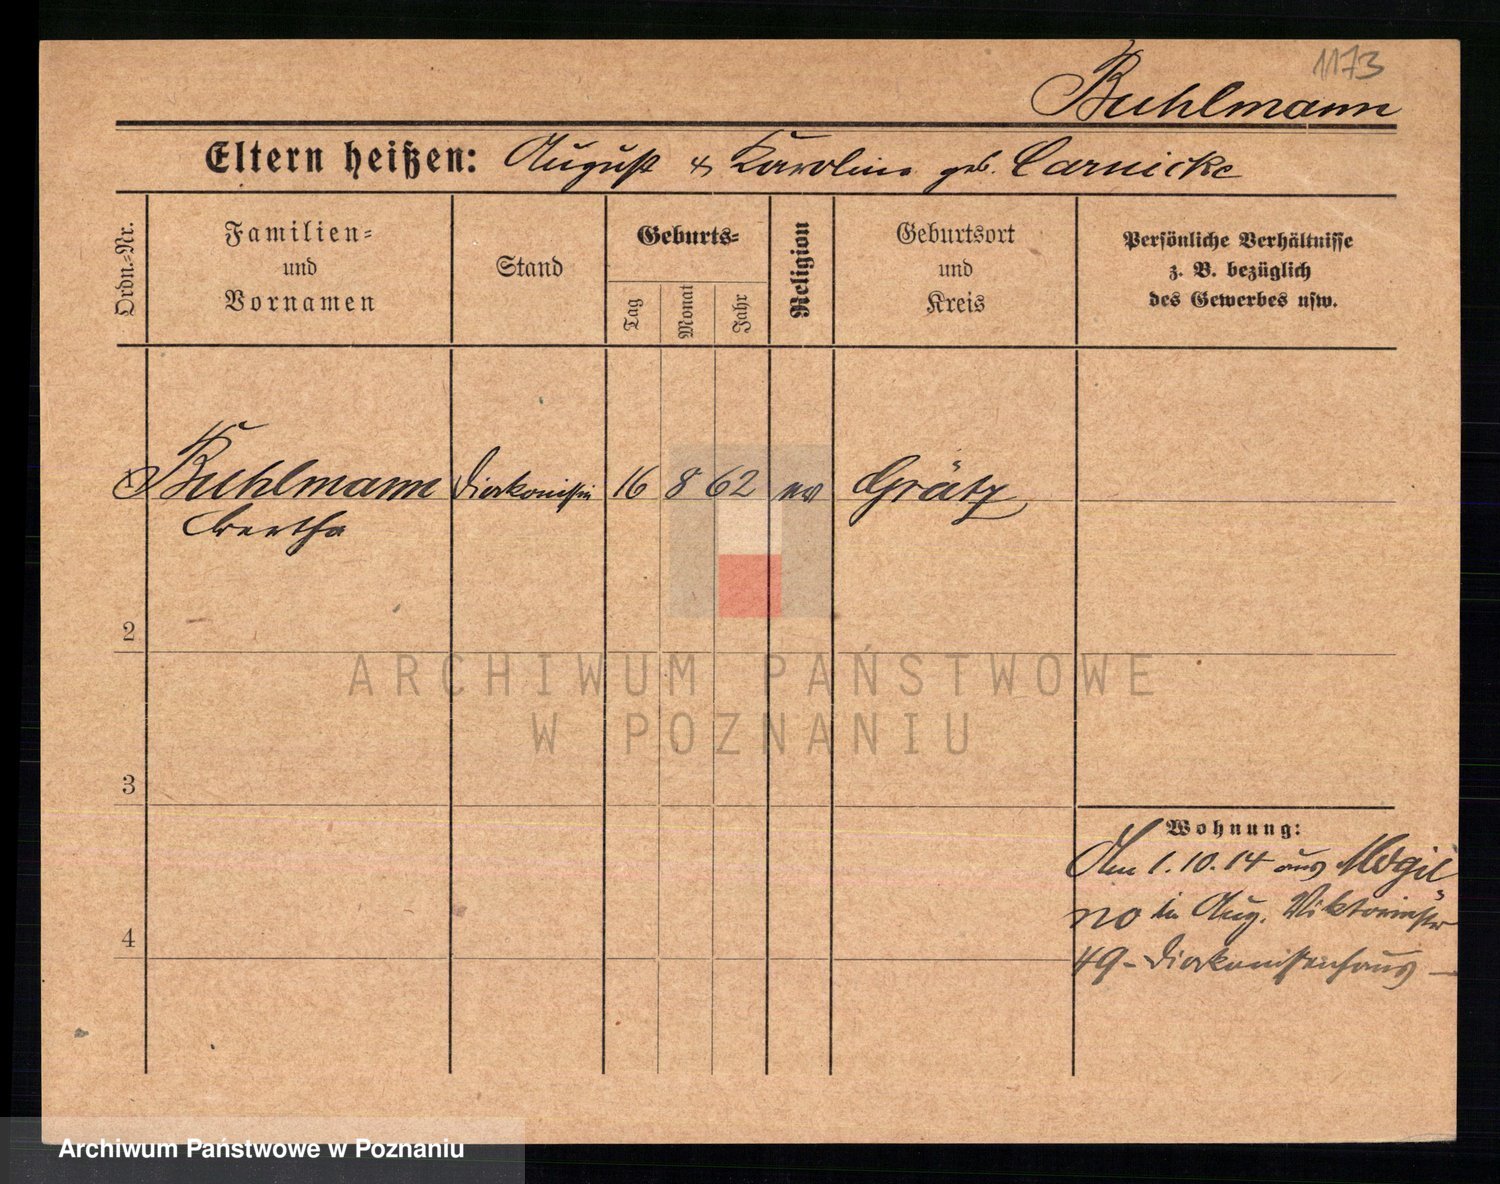 1173
Buhlmann
Eltern heißen: August & Karoline geb. Carnicke
Ordn.-Nr.
Familien-
und
Vornamen
Stand
Geburts-
Tag
Monat
Jahr
Religion
Geburtsort
und
Kreis
Persönliche Verhältnisse
z. B. bezüglich
des Gewerbes usw.
1 Buhlmann Diakonissin 16 8 62 ev Grätz
Bertha
2
ARCHIWUM PAŃSTWOWE
W POZNANIU
3
Wohnung:
Am 1.10.14 aus Mogil
no in Aug. Viktoriastr
4
49 - Diakonissenhaus -
Archiwum Państwowe w Poznaniu